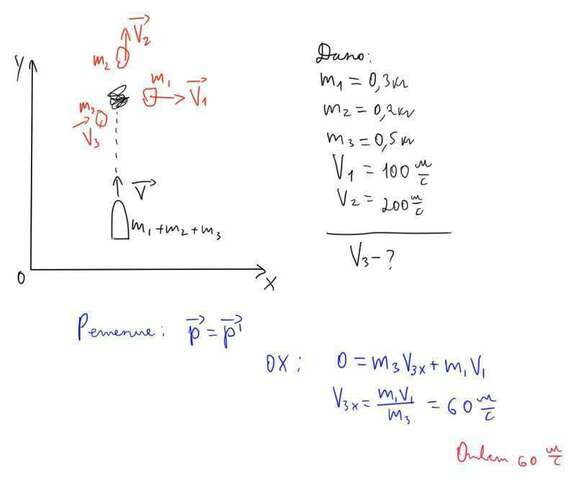 V₂
m₂
Y
m₁
V₁
m₃
V₃
V
m₁+m₂+m₃
0
X
Дано:
m₁ = 0,3кг
m₂ = 0,2кг
m₃ = 0,5кг
V₁ = 100 м/с
V₂ = 200 м/с
V₃ - ?
Решение: p⃗ = p⃗'
OX: 0 = m₃V₃ₓ + m₁V₁
V₃ₓ = m₁V₁/m₃ = 60 м/с
Ответ 60 м/с